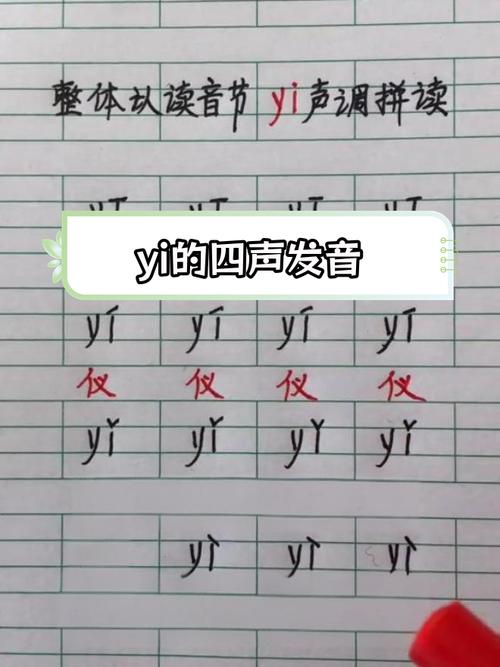 整体认读音节 yi声调拼读
yi的四声发音
yí yí yí yí
仪 仪 仪 仪
yǐ yǐ yǐ yǐ
yì yì yì